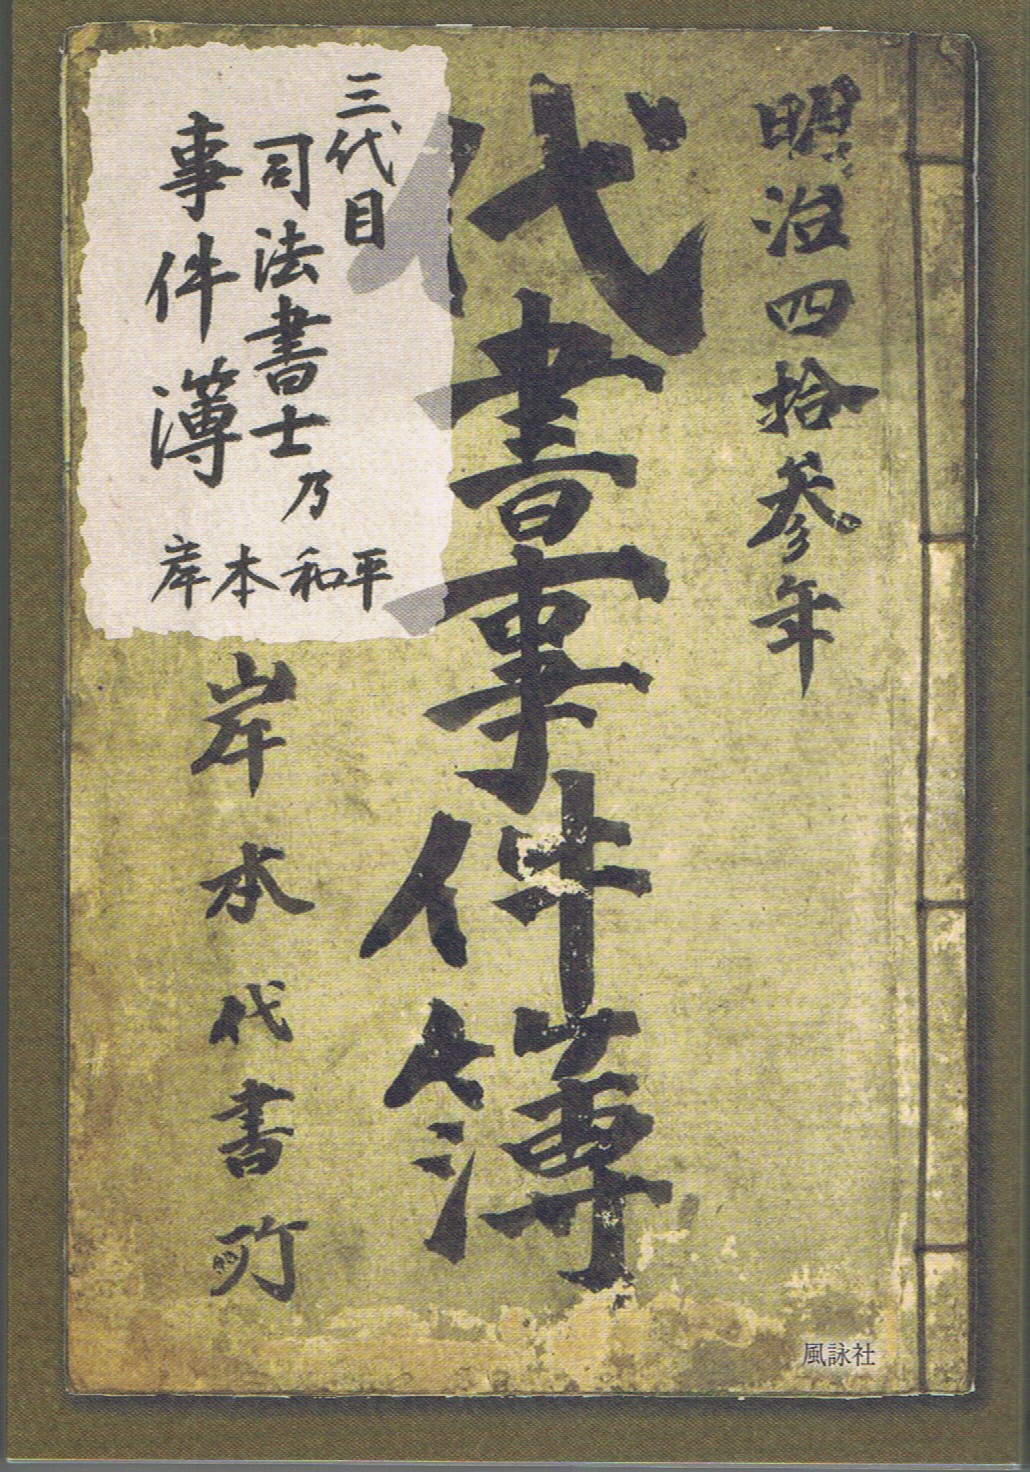 明治四拾参年
代書事件簿
岸本代書所
三代目
司法書士乃
事件薄
岸本和平
風詠社